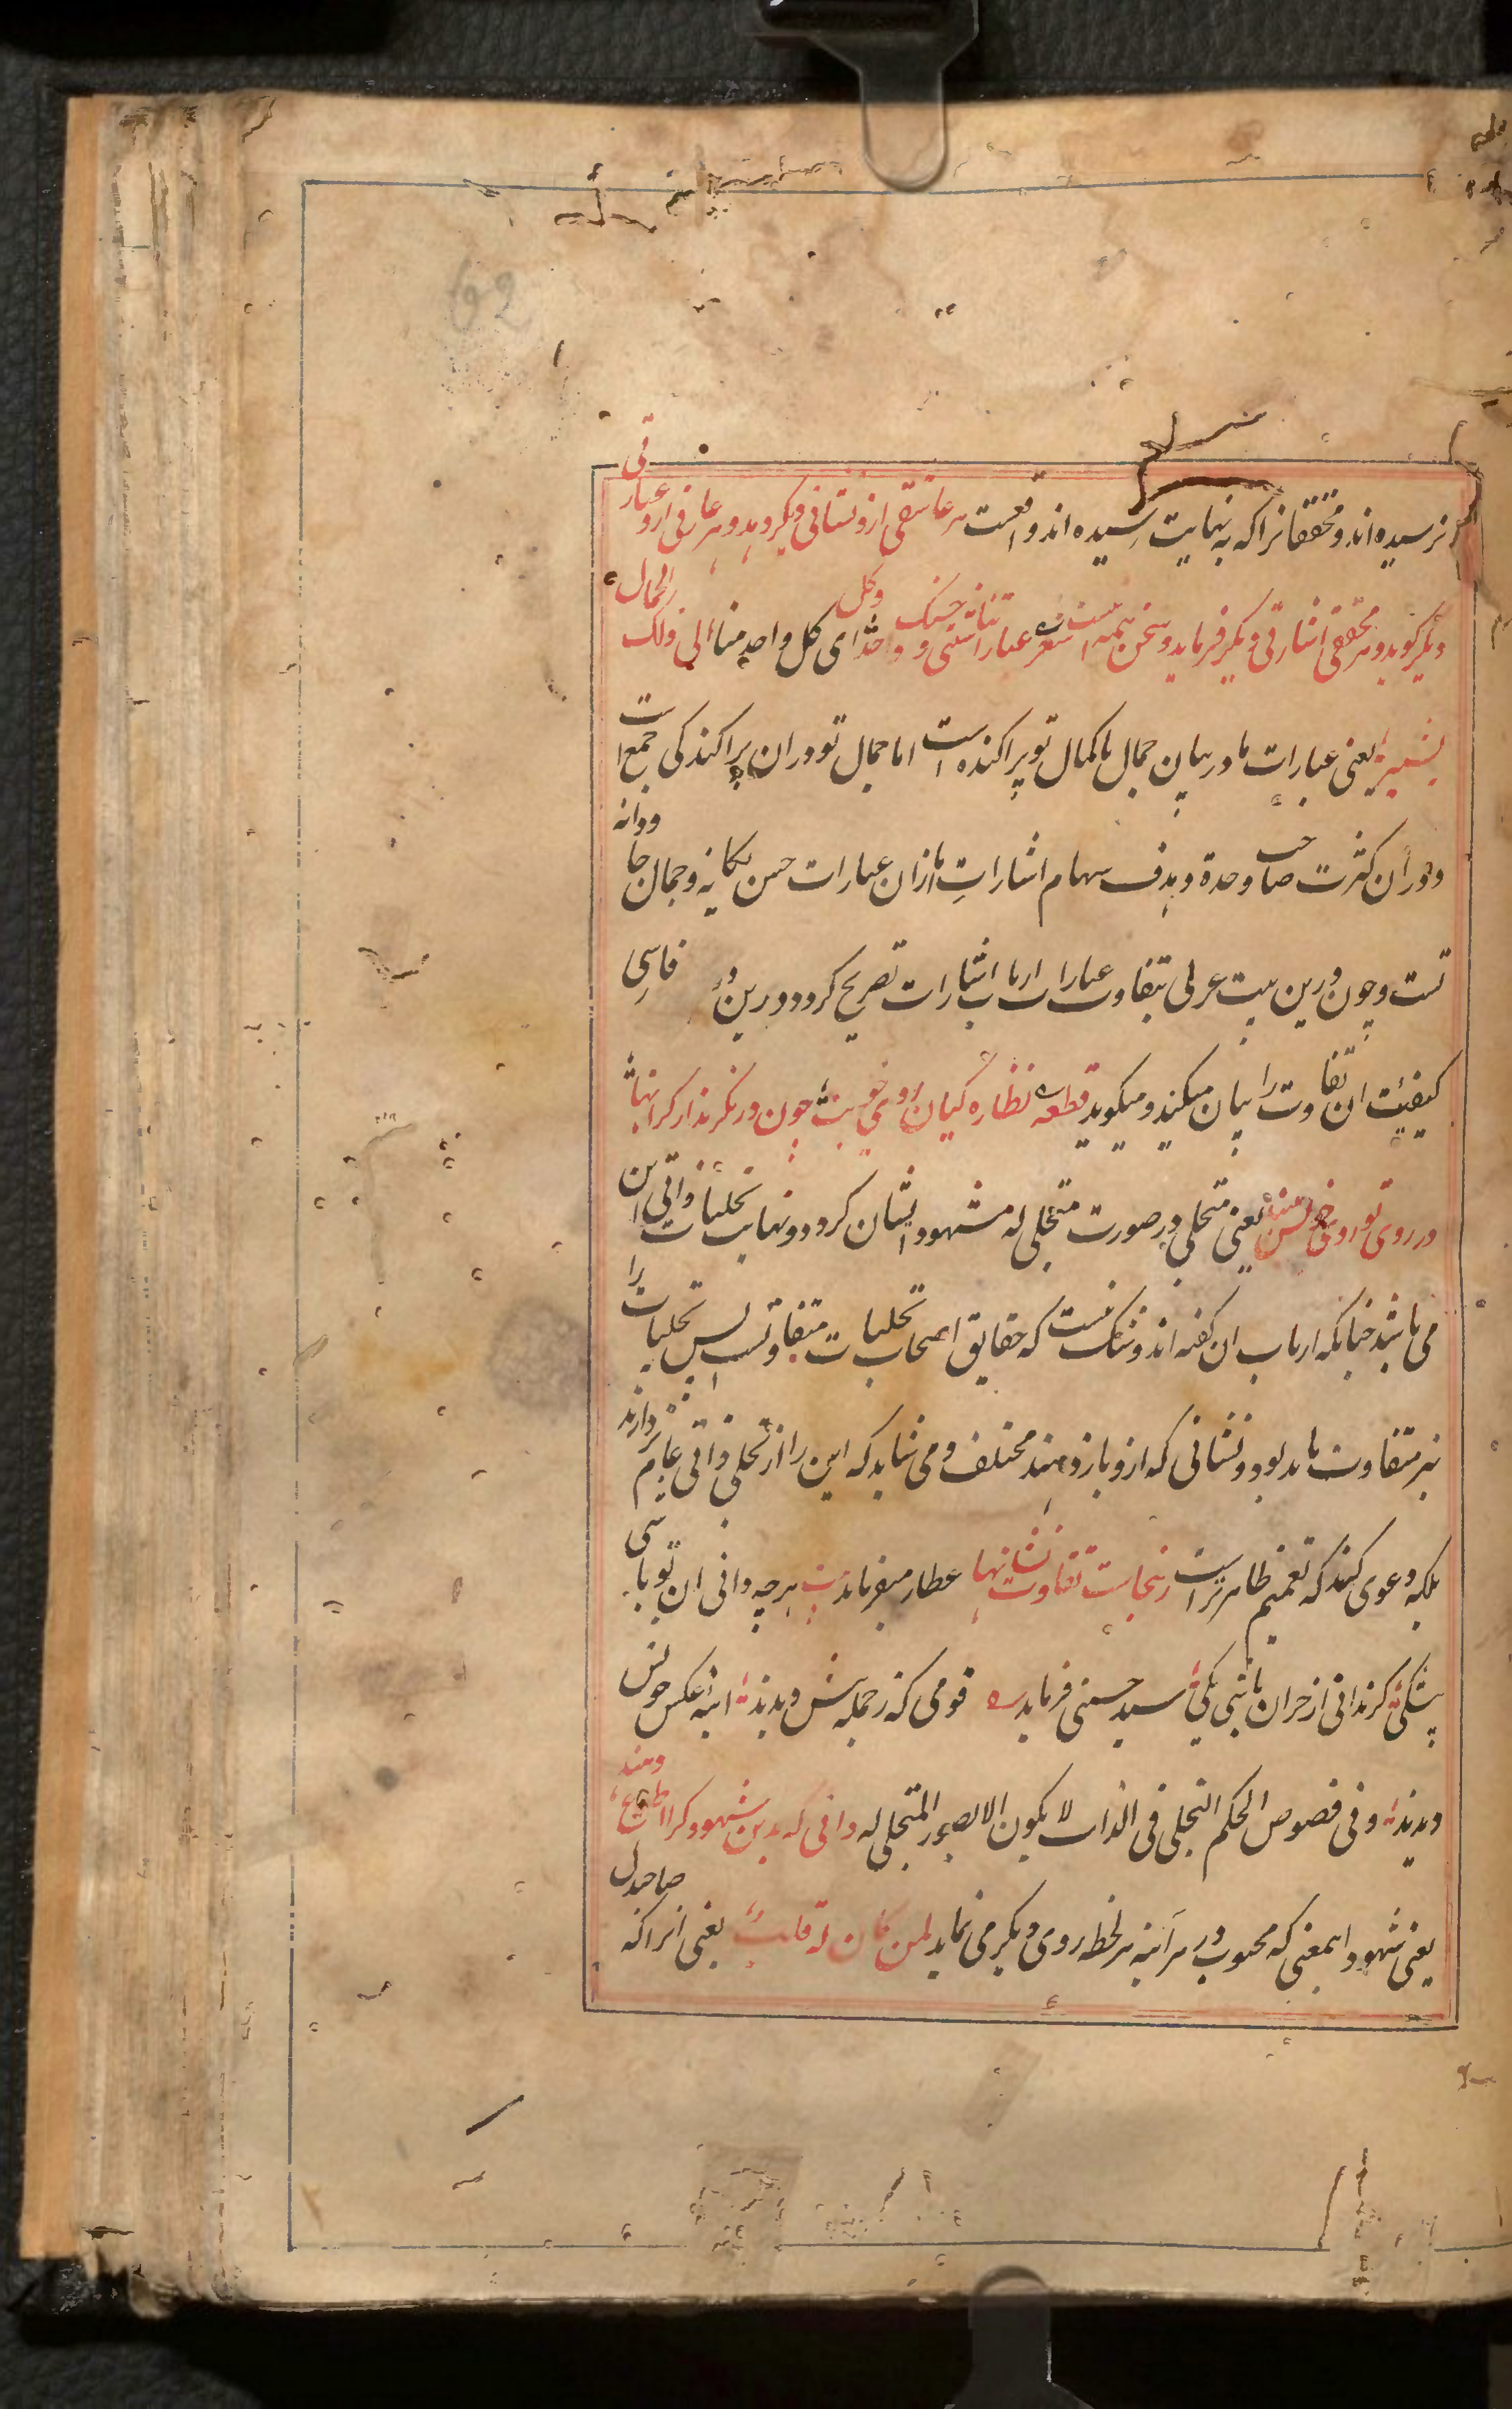 نرسیده اند و محققانرا که به نهایت رسیده اند واقعست هر عاشقی ازو نشانی دیگر دهد و هر عارفی ازو عبارتی
دیگر گوید و هر محققی اشارتی دیگر فرماید و سخن همه اینست شعر عباراتنا شتی و حسنک واحد ای کل واحد منا وکل الی ذلک الجمال
یشیر یعنی عبارات ما در بیان جمال با کمال تو پراکنده است اما جمال تو در ان پراکندکی جمع است
و در ان کثرت صاحب وحدة و هدف سهام اشارات ما ازان عبارات حسن یکانه و جمال جاودانه
تست و چون درین بیت عربی بتفاوت عبارات ارباب اشارات تصریح کرد و درین دو فارسی
کیفیت ان تفاوت را بیان میکند و میکوید قطعه نظاره کیان روی خوبت چون در نکرند از کرانها
در روی تو روی خویش بینند یعنی متجلی در صورت متجلی له مشهود ایشان کردد و نهایت تجلیات ذاتی این
می باشد چنانکه ارباب ان کفته اند و شک نیست که حقایق اصحاب تجلیات متفاوتست پس تجلیات را
نیز متفاوت باید بود و نشانی که ازو باز دهند مختلف و می شاید که این را از تجلی ذاتی عام تر دارند
بلکه دعوی کنند که تعمیم ظاهرتر است زینجاست تفاوت نشانها عطار میفرماید بیت هر چه دانی ان تو باشی
بیشکی کر ندانی از خران باشی یکی سید حسینی فرماید قومی که ز جمله پیش دیدند اینه عکس خویش
دیدند و فی فصوص الحکم التجلی فی الذات لا یکون الا بصور المتجلی له دانی که بدین شهود کرا اطلاع دهند
یعنی شهود اینمعنی که محبوب در هر آینه هر لحظه روی دیکر می نماید لمن کان له قلب یعنی انرا که صاحبدل